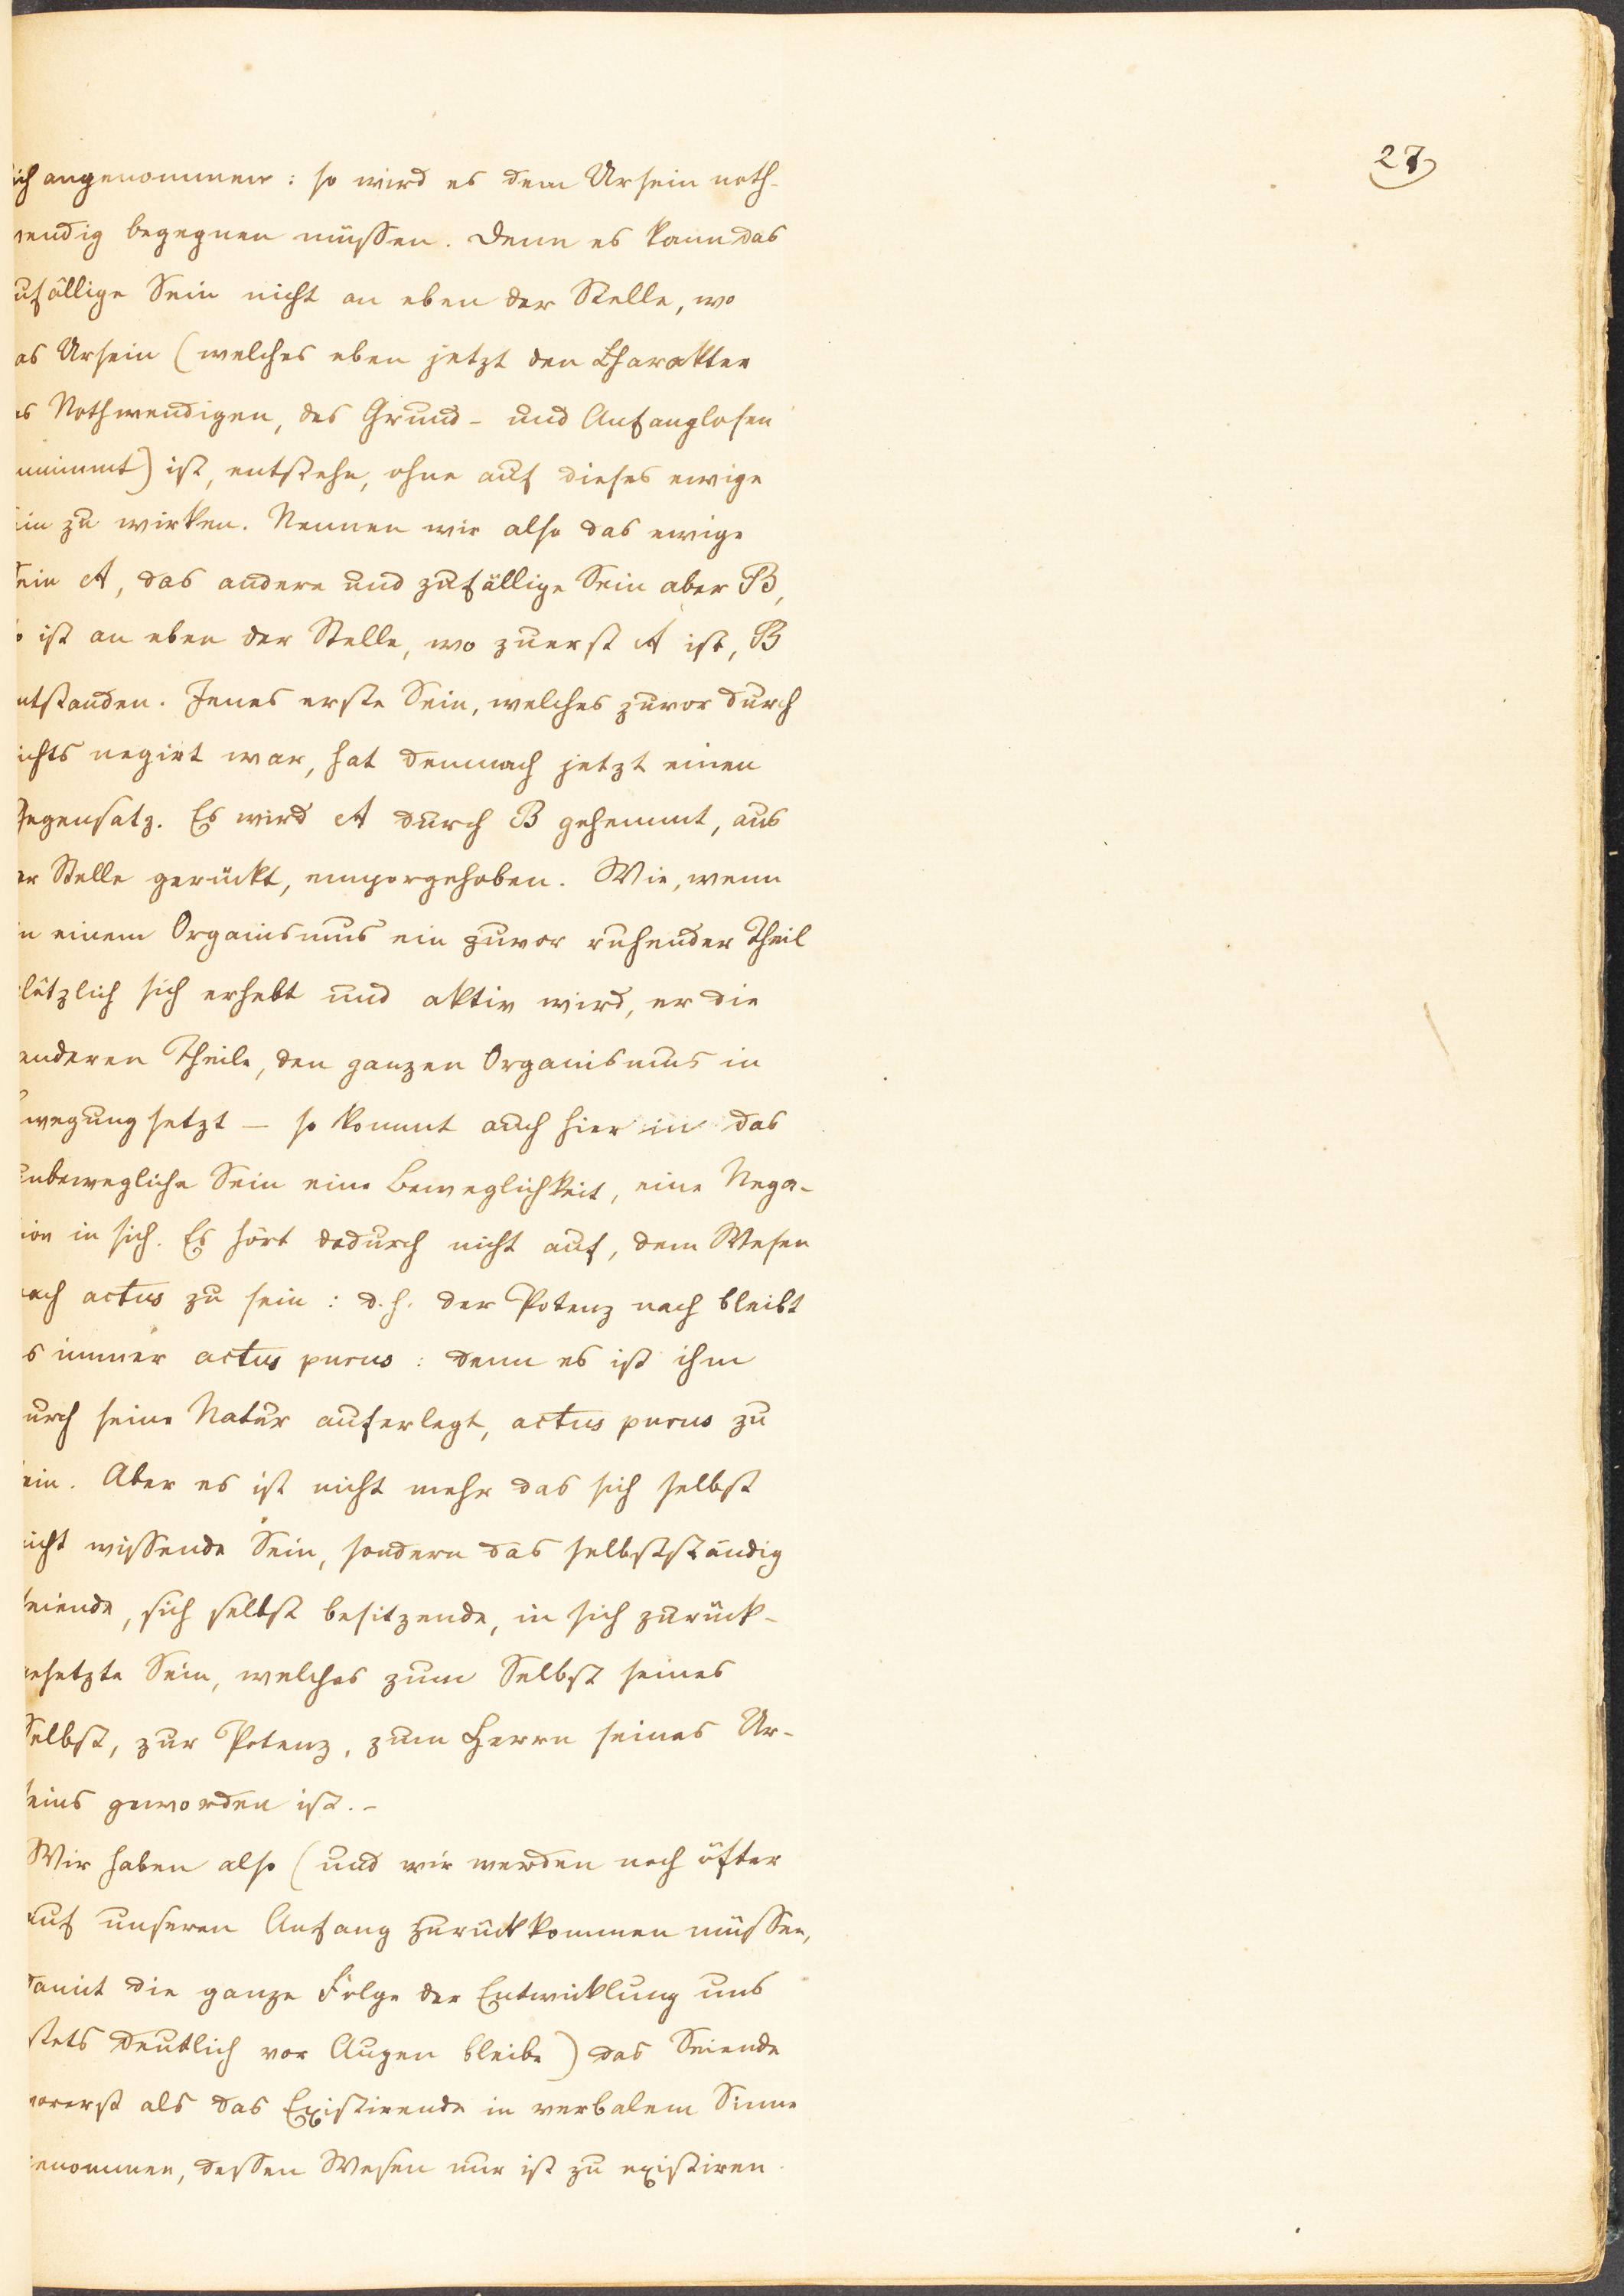 27
ich angenommen: so wird es dem Ursein noth-
wendig begegnen müssen. Denn es kann das
ufällige Sein nicht an eben der Stelle, wo
as Ursein (welches eben jetzt den Charakter
es Nothwendigen, des Grund- und Anfanglosen
nnimmt) ist, entstehe, ohne auf dieses ewige
ein zu wirken. Nennen wir also das ewige
Sein A, das andere und zufällige Sein aber B,
so ist an eben der Stelle, wo zuerst A ist, B
ntstanden. Jenes erste Sein, welches zuvor durch
ichts negirt war, hat demnach jetzt einen
Gegensatz. Es wird A durch B gehemmt, aus
er Stelle gerückt, emporgehoben. Wie, wenn
in einem Organismus ein zuvor ruhender Theil
lötzlich sich erhebt und aktiv wird, er die
anderen Theile, den ganzen Organismus in
wegung setzt — so kommt auch hier in das
unbewegliche Sein eine Beweglichkeit, eine Nega-
ion in sich. Es hört dadurch nicht auf, dem Wesen
nach actus zu sein: d. h. der Potenz nach bleibt
s immer actus purus: denn es ist ihm
urch seine Natur auferlegt, actus purus zu
sein. Aber es ist nicht mehr das sich selbst
nicht wissende Sein, sondern das selbstständig
seiende, sich selbst besitzende, in sich zurück-
gesetzte Sein, welches zum Selbst seines
Selbst, zur Potenz, zum Herrn seines Ur-
seins geworden ist. -
Wir haben also (und wir werden noch öfter
auf unseren Anfang zurückkommen müssen,
damit die ganze Folge der Entwicklung uns
stets deutlich vor Augen bleibe) das Seiende
vorerst als das Existirende in verbalem Sinne
genommen, dessen Wesen nur ist zu existiren.